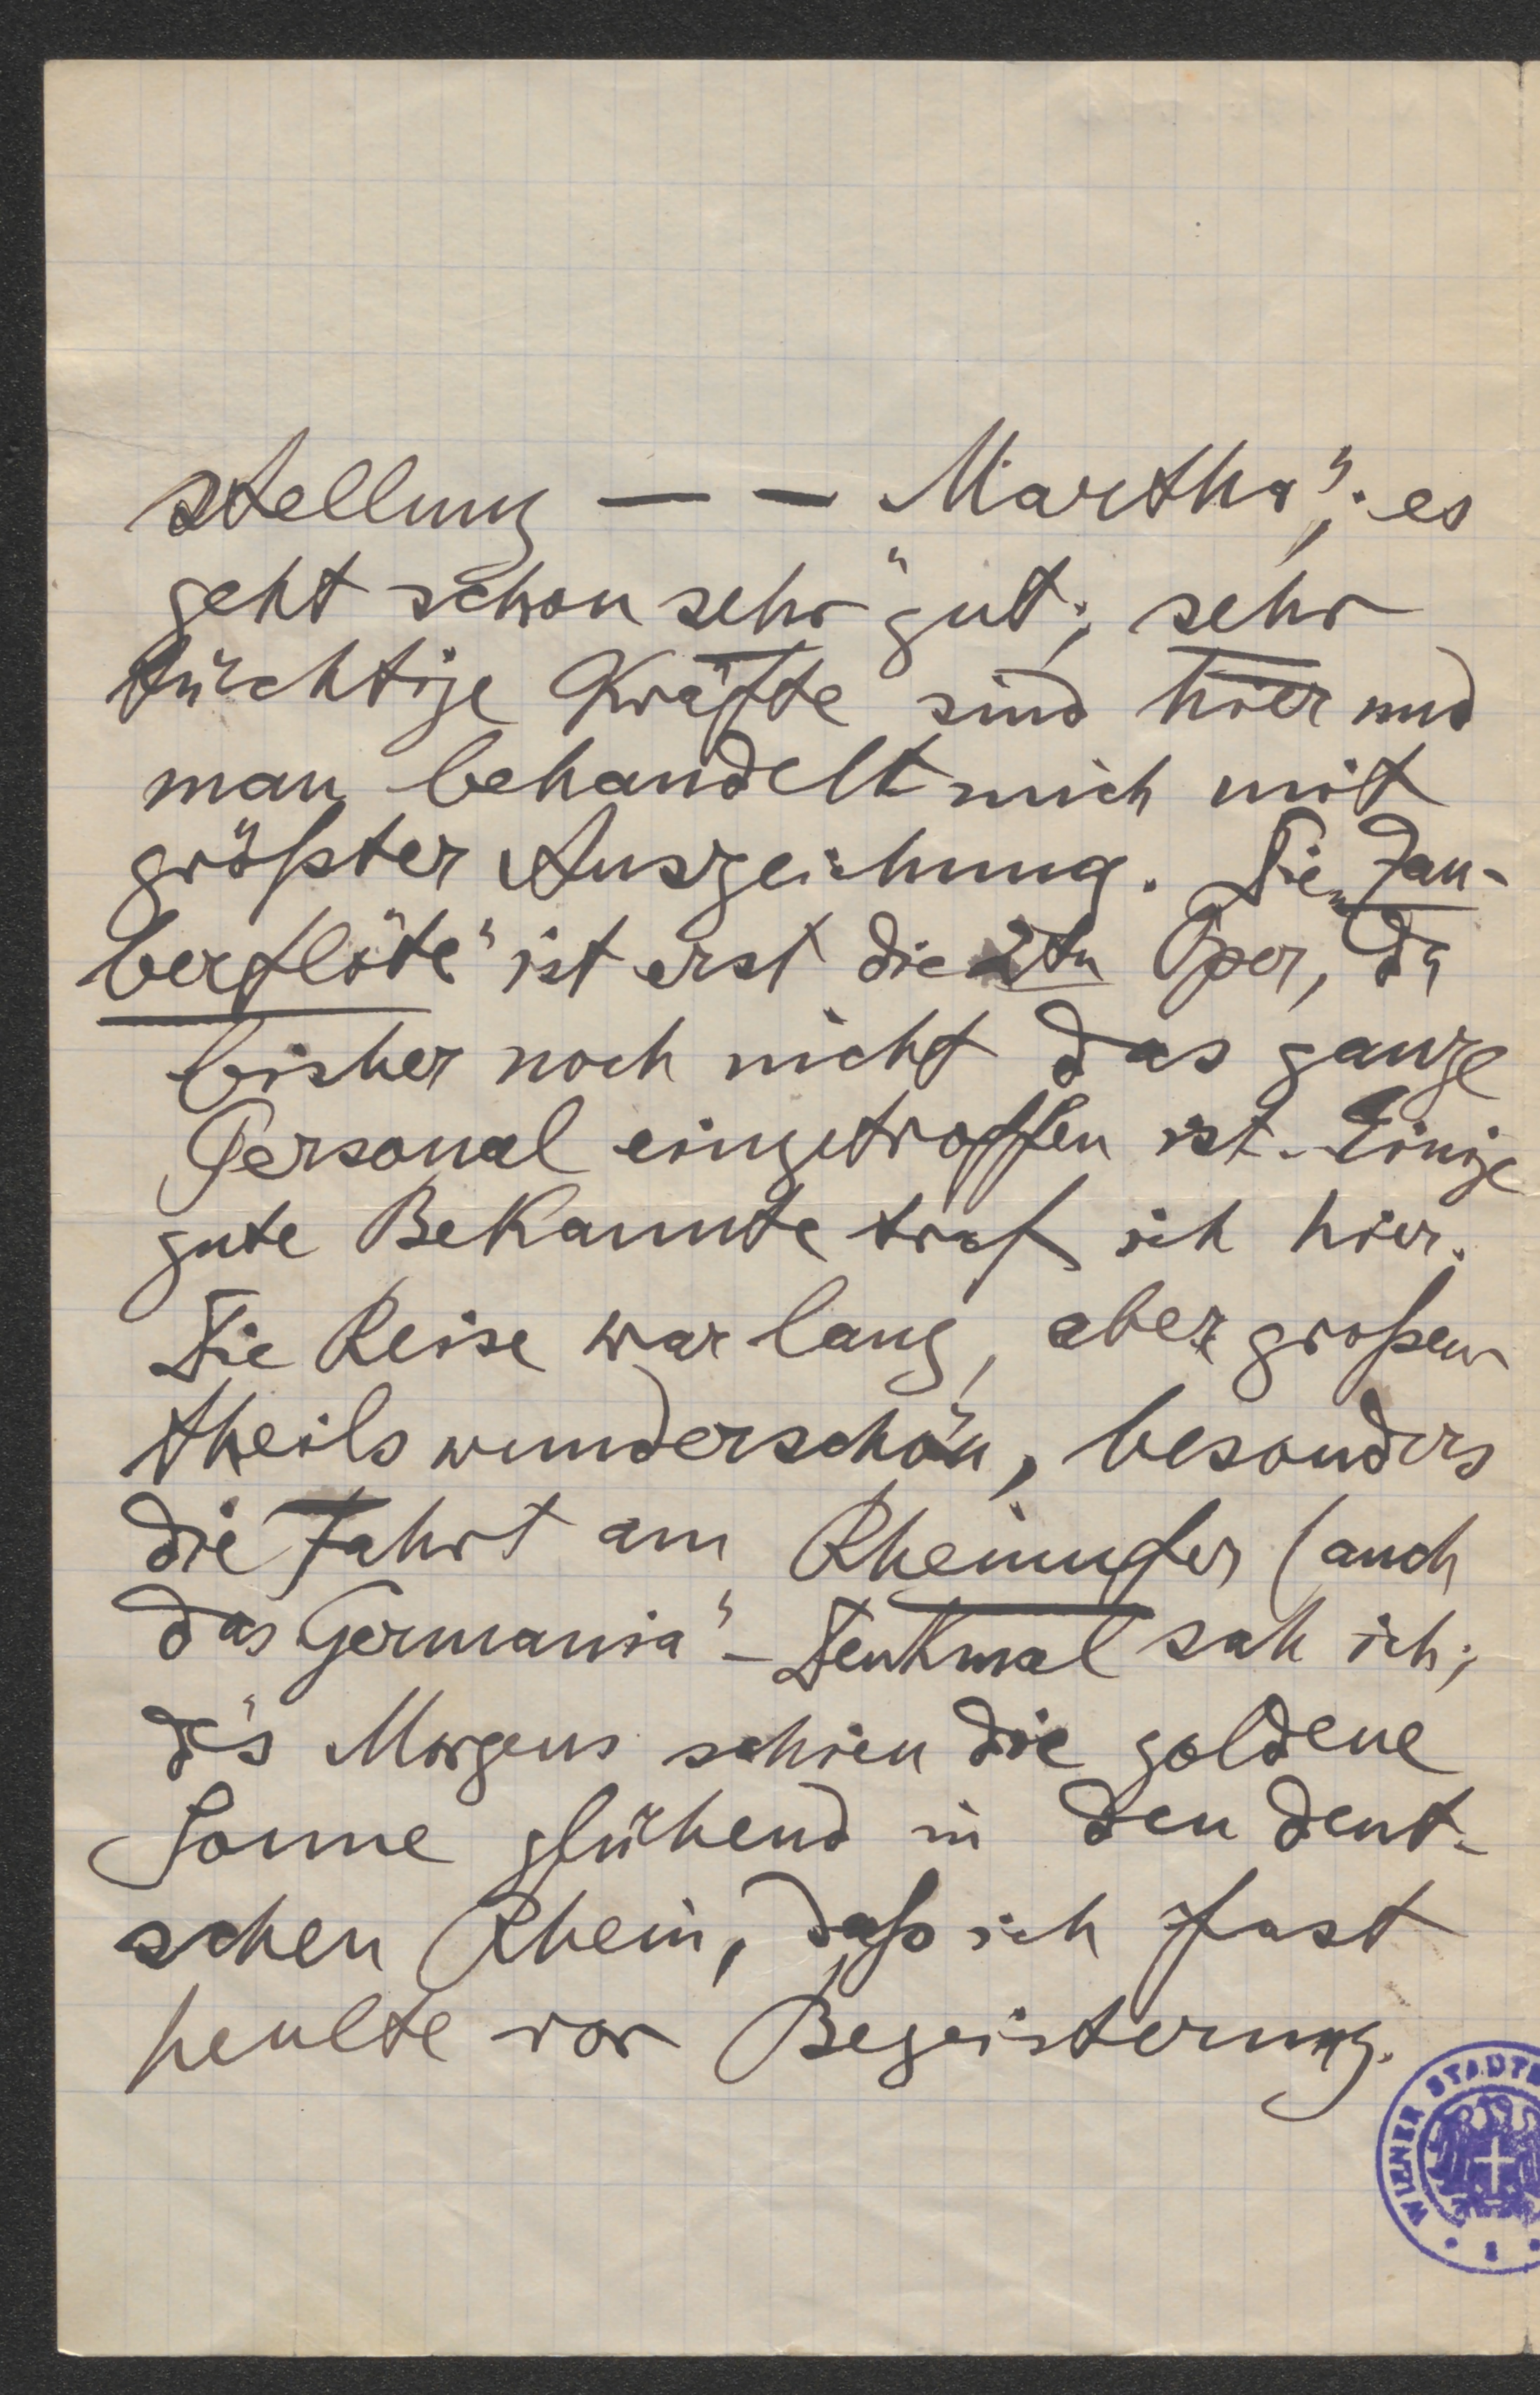 stellung — — Martha"; es
geht schon sehr gut; sehr
tüchtige Kräfte sind hier und
man behandelt mich mit
größter Auszeichnung. Die „Zau-
berflöte" ist erst die 2tn Oper, da
bisher noch nicht das ganze
Personal eingetroffen ist. Einige
gute Bekannte traf ich hier.
Die Reise war lang, aber großen-
theils wunderschön, besonders
die Fahrt am Rheinufer (auch
das Germania"-Denkmal sah ich;
des Morgens schien die goldene
Sonne glühend in den deut-
schen Rhein, daß ich fast
heulte vor Begeisterung.
WIENER STADT